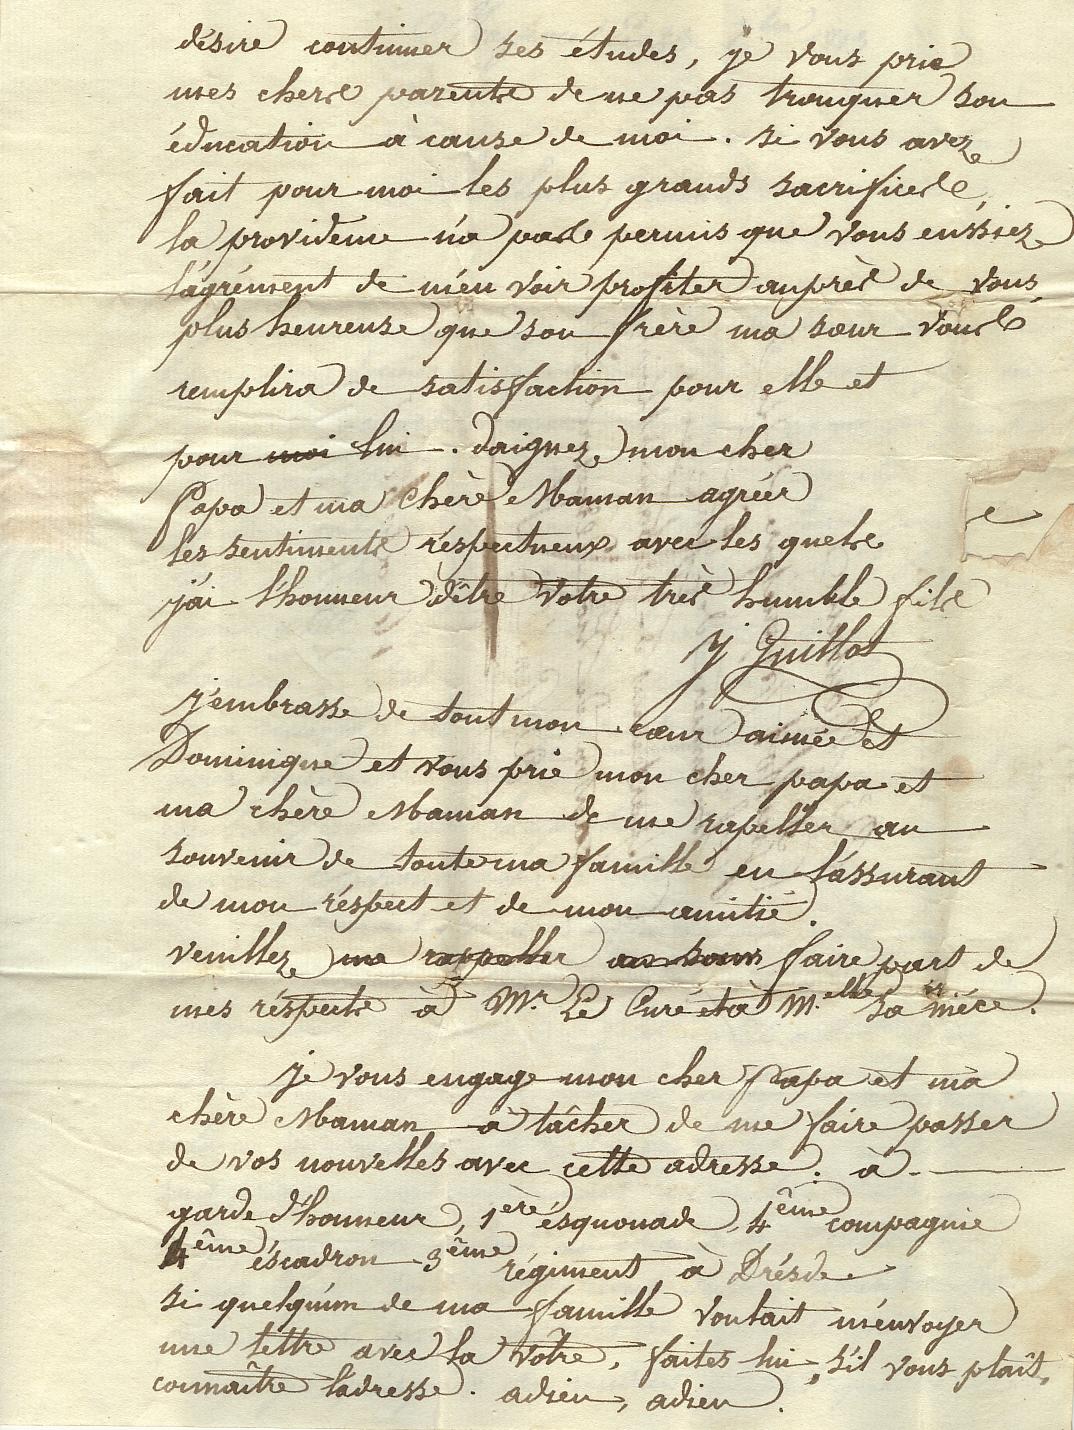 désire continuer ses études, je vous prie
mes chers parents de ne pas tronquer son
éducation à cause de moi. si vous avez
fait pour moi les plus grands sacrifices,
la providence n'a pas permis que vous eussiez
l'agrément de m'en voir profiter auprès de vous,
plus heureuse que son frère ma sœur vous
remplira de satisfaction pour elle et
pour moi lui. daignez mon cher
Papa et ma chère Maman agréer
les sentiments réspectueux avec les quels
j'ai l'honneur d'être votre très humble fils
J Guillot
j'embrasse de tout mon cœur aimée et
Dominique et vous prie mon cher papa et
ma chère Maman de me rapeller au
souvenir de toute ma famille en l'assurant
de mon réspect et de mon amitié.
veuillez me rappeller au souv faire part de
mes réspects à Mr. Le Curé et à M.elle sa nièce.
je vous engage mon cher papa et ma
chère Maman à tâcher de me faire passer
de vos nouvelles avec cette adresse. à
garde d'honneur, 1ère ésquouade, 4ême compagnie
4ême éscadron 3ême régiment à Drésde
si quelqu'un de ma famille voulait m'envoyer
une lettre avec la vôtre, faites lui, s'il vous plaît,
connaître l'adresse. adieu, adieu.